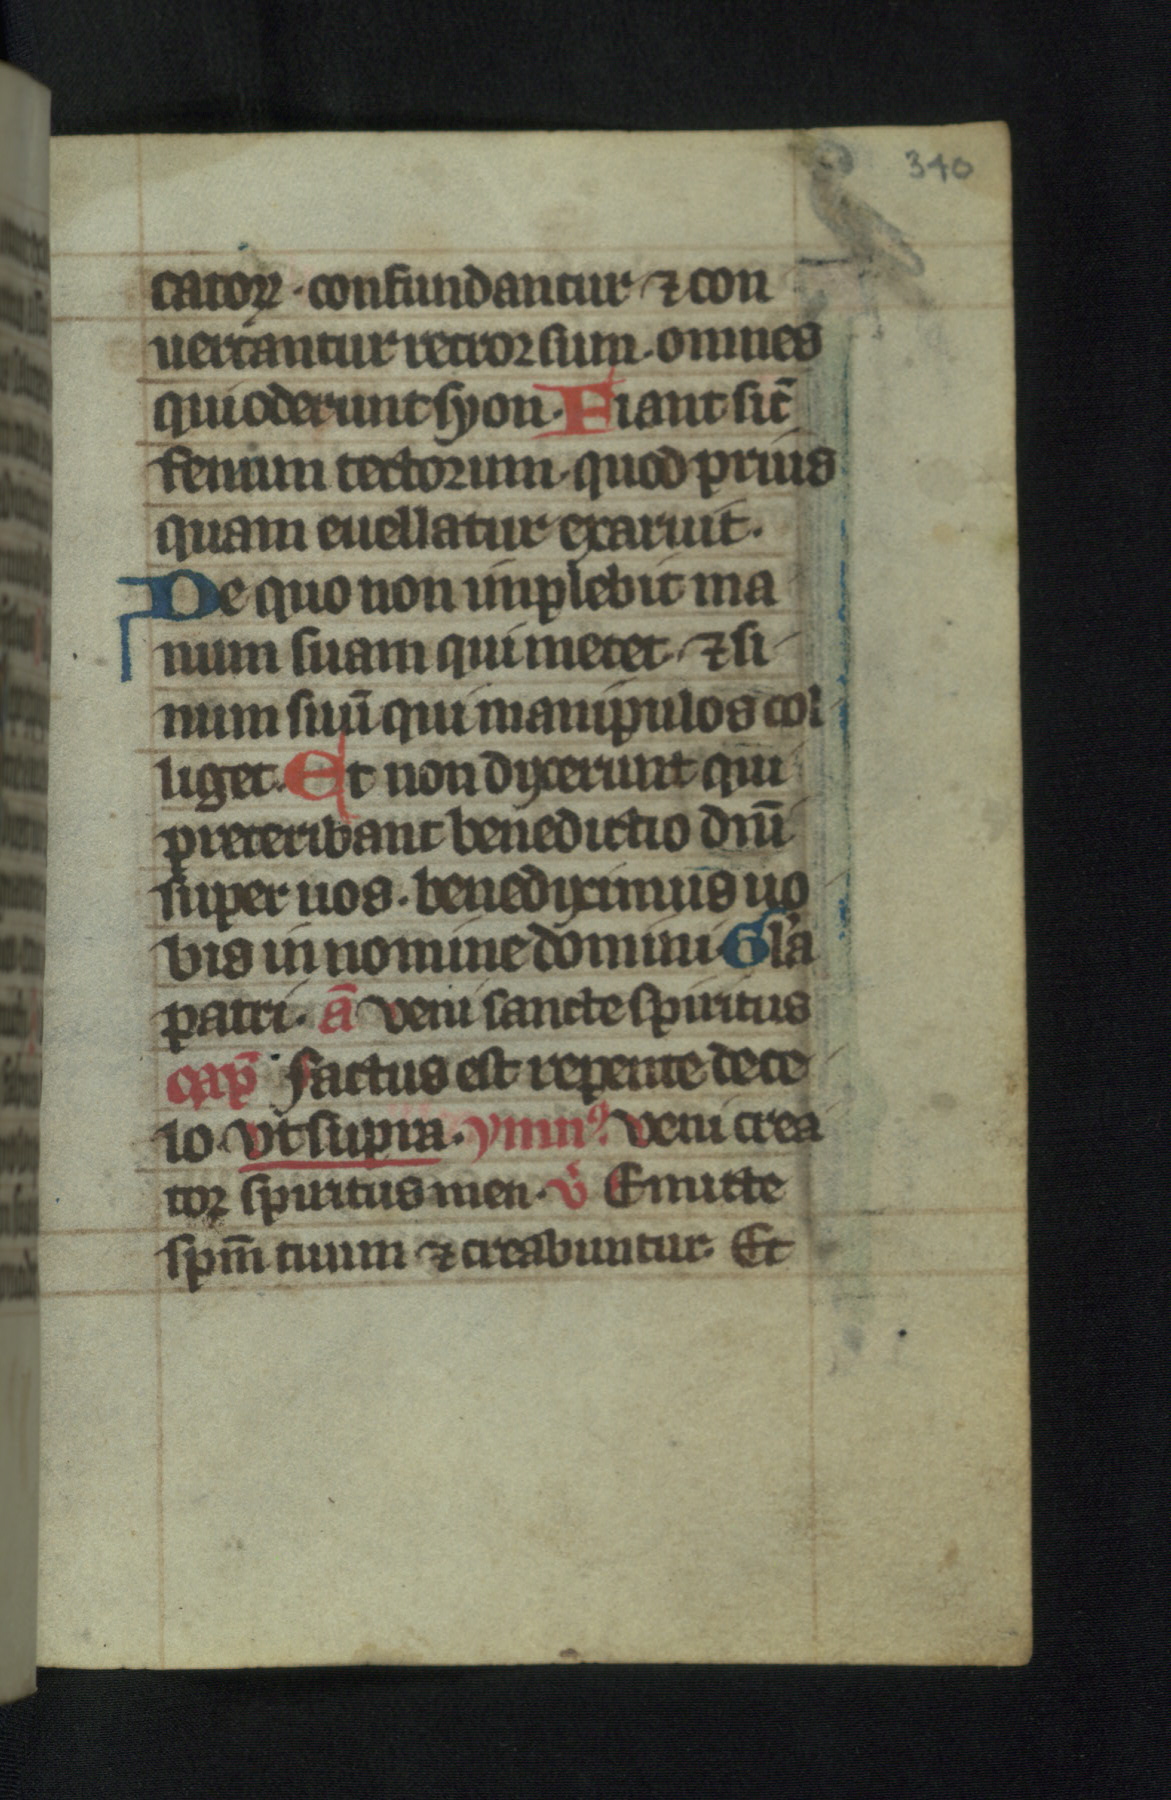 340
catoꝝ · confundantur ⁊ con
uertantur retrorsum · omnes
qui oderunt syon · Fiant sic̄
fenum tectorum · quod prius
quam euellatur exaruit ·
De quo non implebit ma
num suam qui metet · ⁊ si
num suū qui manipulos col
liget · Et non dyxerunt qui
preteribant benedictio dn̄i
super uos · benedyximus uo
bis in nomine domini Gl'a
patri · ā veni sancte spiritus
cap̄ factus est repente de ce
lo · vt supra · ymnꝰ · veni crea
tor spiritus men · v̊ Emitte
spm̄ tuum ⁊ creabuntur · Et